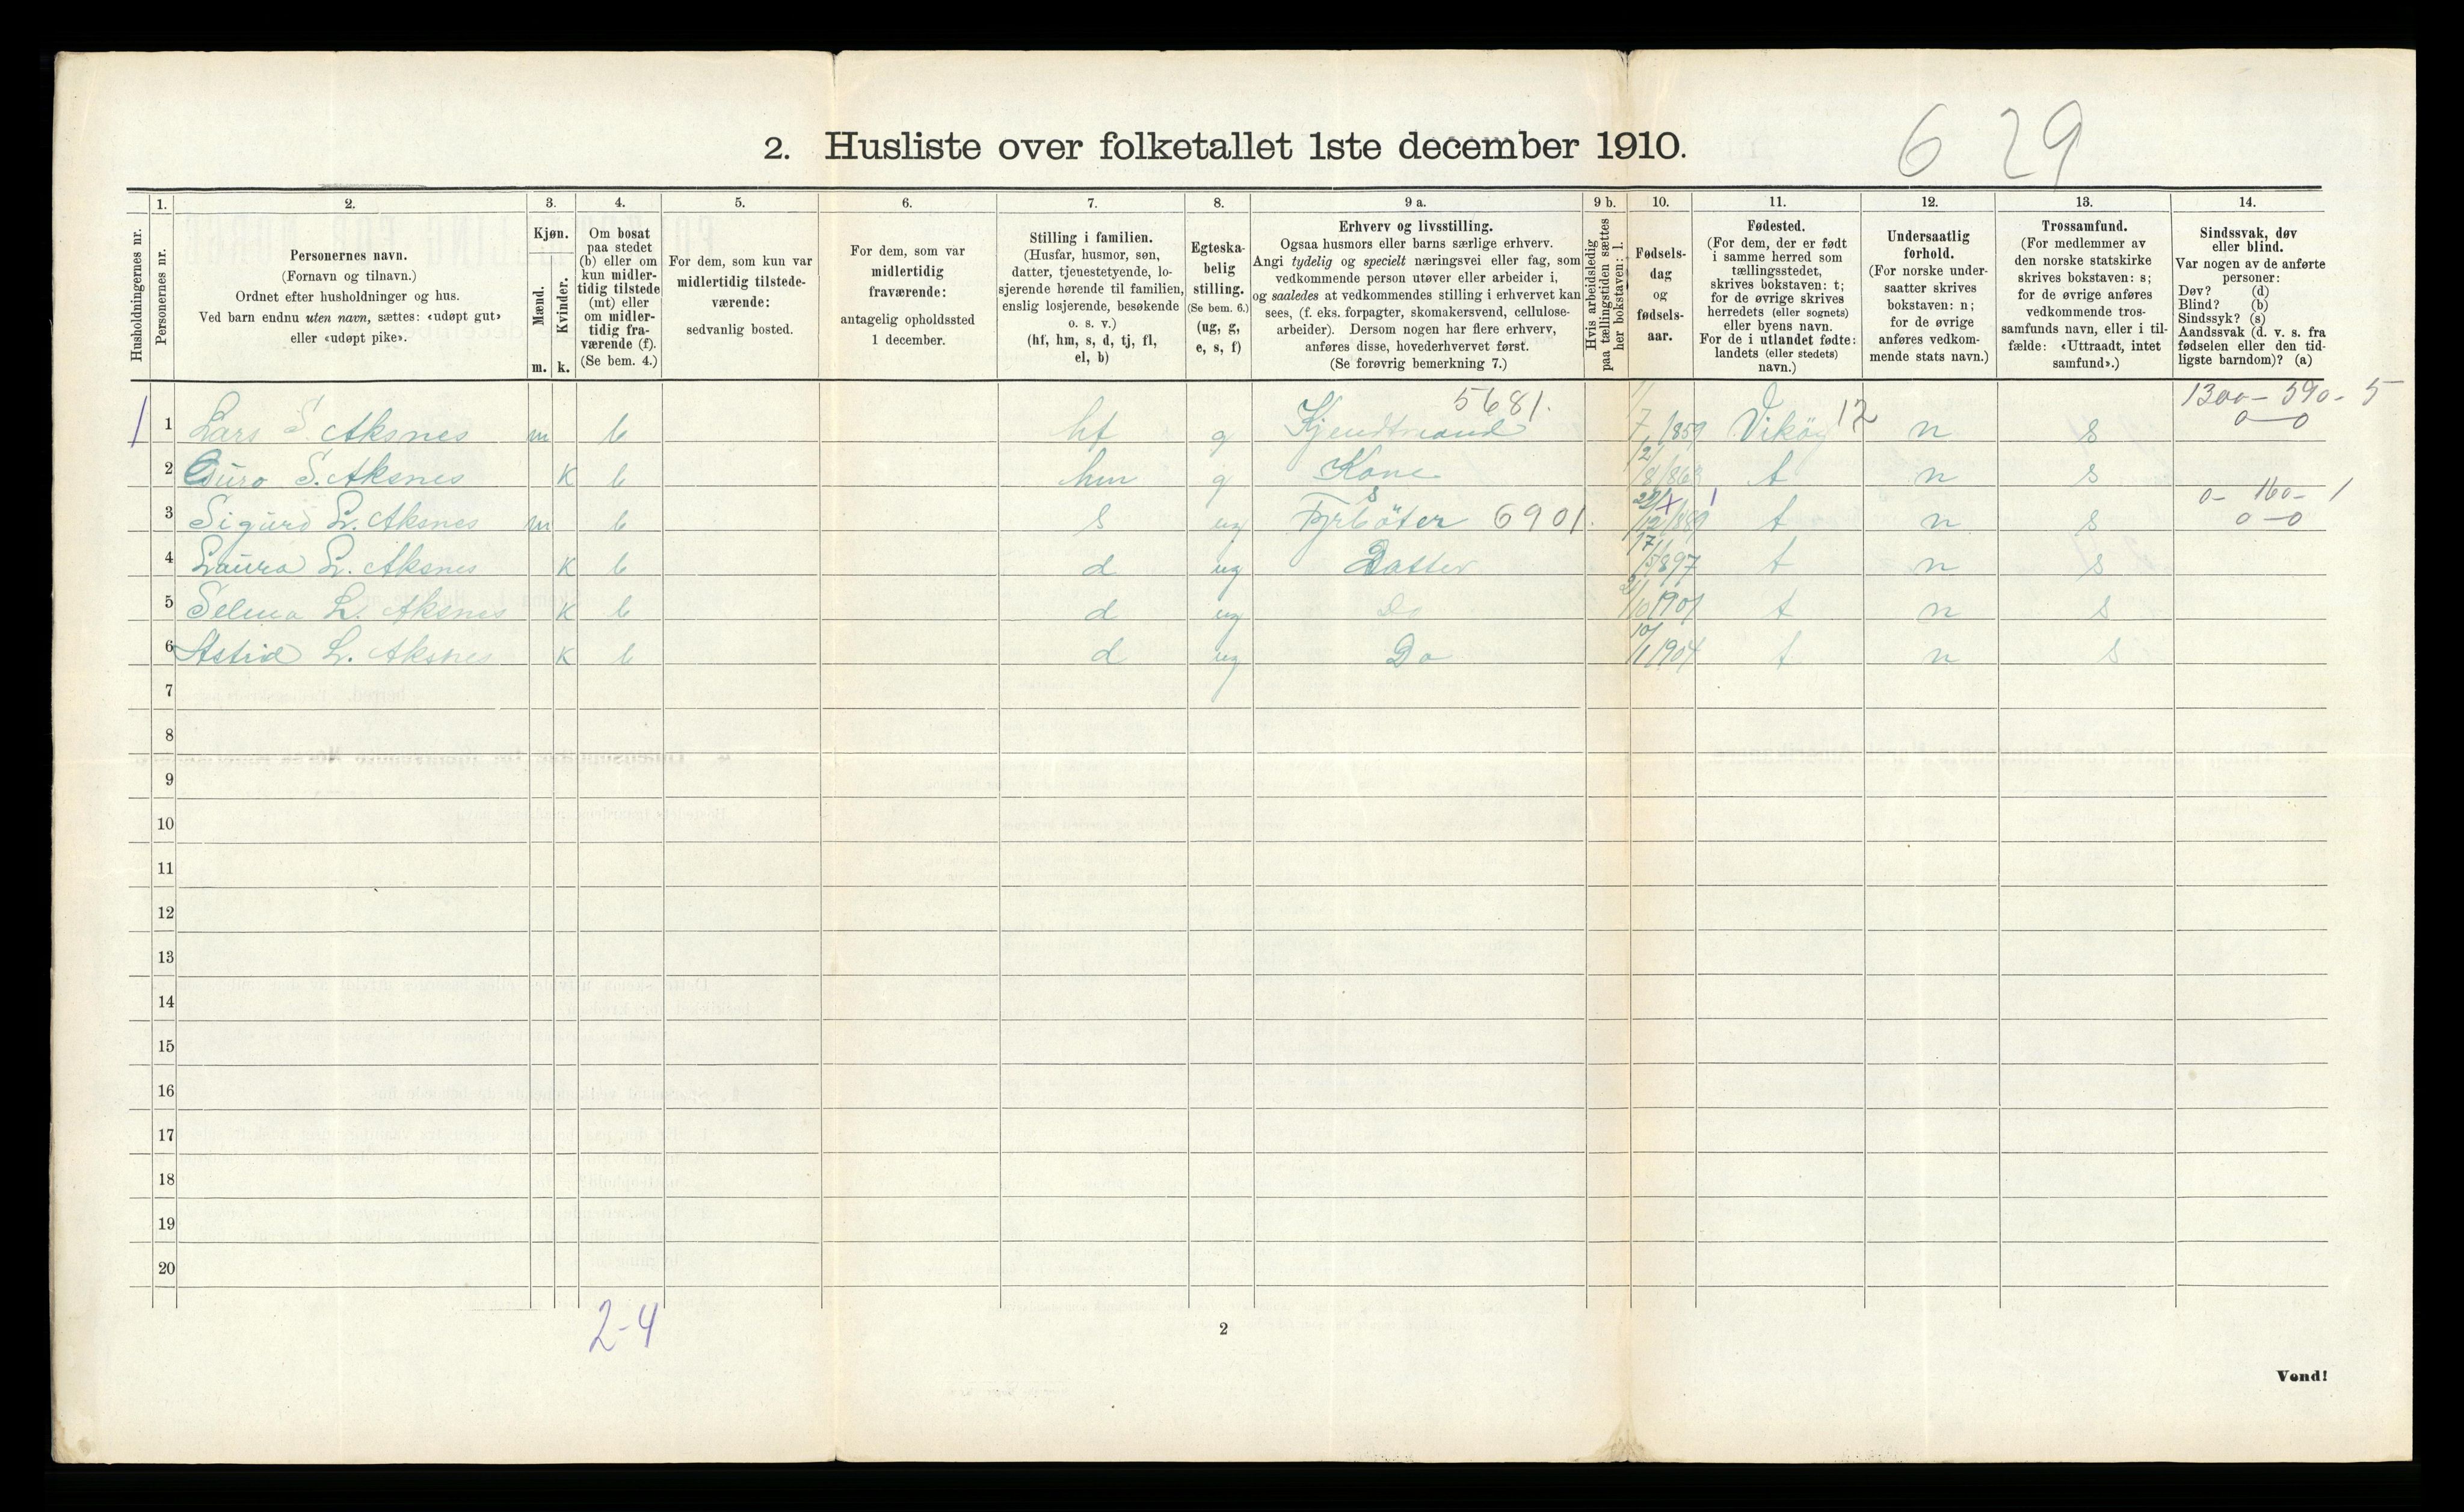 2. Husliste over folketallet 1ste december 1910.
6 29
1.
2.
3.
4.
5.
6.
7.
8.
9 a.
9 b.
10.
11.
12.
13.
14.
Husholdningernes nr.
Personernes nr.
Personernes navn.
(Fornavn og tilnavn.)
Ordnet efter husholdninger og hus.
Ved barn endnu uten navn, sættes: «udøpt gut»
eller «udøpt pike».
Kjøn.
Mænd.
Kvinder.
m. k.
Om bosat
paa stedet
(b) eller om
kun midler-
tidig tilstede
(mt) eller
om midler-
tidig fra-
værende (f).
(Se bem. 4.)
For dem, som kun var
midlertidig tilstede-
værende:
sedvanlig bosted.
For dem, som var
midlertidig
fraværende:
antagelig opholdssted
1 december.
Stilling i familien.
(Husfar, husmor, søn,
datter, tjenestetyende, lo-
sjerende hørende til familien,
enslig losjerende, besøkende
o. s. v.)
(hf, hm, s, d, tj, fl,
el, b)
Egteska-
belig
stilling.
(Se bem. 6.)
(ug, g,
e, s, f)
Erhverv og livsstilling.
Ogsaa husmors eller barns særlige erhverv.
Angi tydelig og specielt næringsvei eller fag, som
vedkommende person utøver eller arbeider i,
og saaledes at vedkommendes stilling i erhvervet kan
sees, (f. eks. forpagter, skomakersvend, cellulose-
arbeider). Dersom nogen har flere erhverv,
anføres disse, hovederhvervet først.
(Se forøvrig bemerkning 7.)
Hvis arbeidsledig
paa tællingstiden sættes
her bokstaven: l.
Fødsels-
dag
og
fødsels-
aar.
Fødested.
(For dem, der er født
i samme herred som
tællingsstedet,
skrives bokstaven: t;
for de øvrige skrives
herredets (eller sognets)
eller byens navn.
For de i utlandet fødte:
landets (eller stedets)
navn.)
Undersaatlig
forhold.
(For norske under-
saatter skrives
bokstaven: n;
for de øvrige
anføres vedkom-
mende stats navn.)
Trossamfund.
(For medlemmer av
den norske statskirke
skrives bokstaven: s;
for de øvrige anføres
vedkommende tros-
samfunds navn, eller i til-
fælde: «Uttraadt, intet
samfund».)
Sindssvak, døv
eller blind.
Var nogen av de anførte
personer:
Døv? (d)
Blind? (b)
Sindssyk? (s)
Aandssvak (d. v. s. fra
fødselen eller den tid-
ligste barndom)? (a)
5681. 1300 - 590 - 5
1 1 Lars S. Aksnes m b hf g 7/1859 Vikör 12 n s 0-0
2 Guro S. Aksnes k b hm g Kone t n s
0- 160- 1
3 Sigurd L. Aksnes m b s ug 6901. t n s 0-0
4 Laura L. Aksnes k b d ug Datter 17/5 1897 t n s
5 Selma L. Aksnes k b d ug Do t n s
6 Astrid L. Aksnes k b d ug Do 10/1 1904 t n s
7
8
9
10
11
12
13
14
15
16
17
18
19
20
2-4
2
Vend!